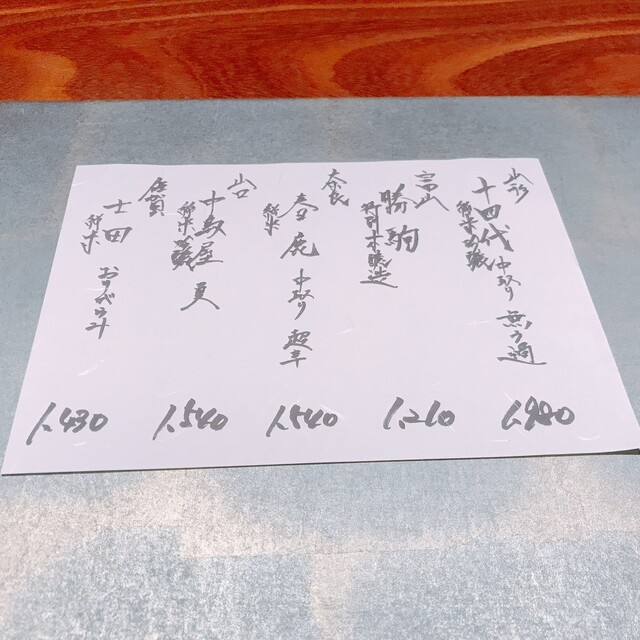 山形
十四代 中取り 無ろ過
純米吟醸
1,980
富山
勝駒
特別本醸造
1,210
奈良
春鹿 中取り 超辛
純米
1,540
山口
十数屋 夏
純米吟醸
1,540
佐賀
七田
純米 おりがらみ
1,430